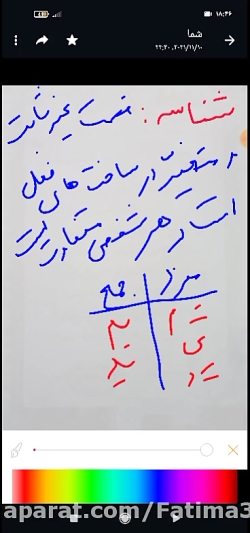 ۱۸:۴۶
شما
۲۰۲۱/۱۱/۱۰، ۲۲:۳۰
شناسه: قسمت غیر ثابت
و متغیر در ساخت های فعل
است از هر شخصی متفاوت است
مفرد جمع
َ م یم
ی ید
َ د
aparat.com/Fatima3